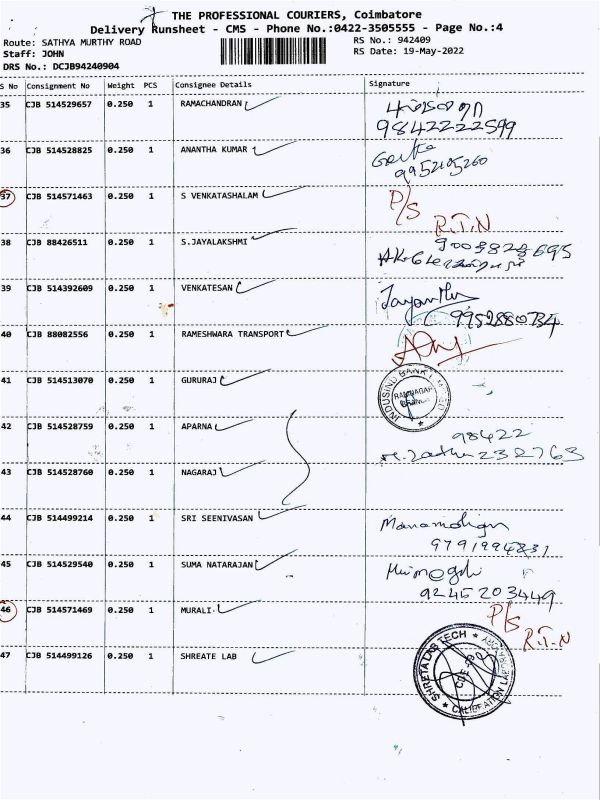 THE PROFESSIONAL COURIERS, Coimbatore
Delivery Runsheet - CMS - Phone No.:0422-3505555 - Page No.:4
Route: SATHYA MURTHY ROAD
RS No.: 942409
Staff: JOHN
RS Date: 19-May-2022
DRS No.: DCJB94240904
S No Consignment No Weight PCS Consignee Details Signature
35 CJB 514529657 0.250 1 RAMACHANDRAN
9842222599
36 CJB 514528825 0.250 1 ANANTHA KUMAR
9952105260
37 CJB 514571463 0.250 1 S VENKATASHALAM P/S
R.T.N
38 CJB 88426511 0.250 1 S.JAYALAKSHMI
39 CJB 514392609 0.250 1 VENKATESAN
40 CJB 88082556 0.250 1 RAMESHWARA TRANSPORT
41 CJB 514513070 0.250 1 GURURAJ
INDUSIND BANK
RAMNAGAR
BRANCH
42 CJB 514528759 0.250 1 APARNA
98422
232763
43 CJB 514528760 0.250 1 NAGARAJ
44 CJB 514499214 0.250 1 SRI SEENIVASAN
9791994831
45 CJB 514529540 0.250 1 SUMA NATARAJAN
9245203449
46 CJB 514571469 0.250 1 MURALI. P/S
R.T.N
47 CJB 514499126 0.250 1 SHREATE LAB
SHRETA LAB TECH
CALIBRATION LAB
CBE